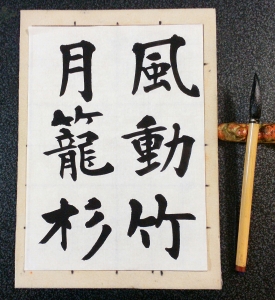 風動竹
月籠杉